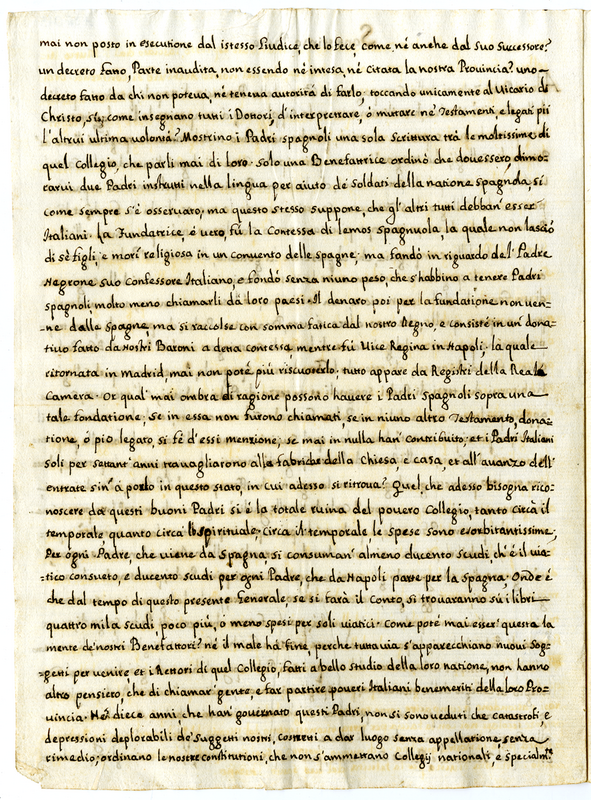 mai non posto in esecutione dal istesso Giudice, che lo fece, come né anche dal suo Successore?
un decreto fatto, Parte inaudita, non essendo né intesa, né citata la nostra Prouincia? uno
decreto fatto da chi non poteua, né teneua autorità di farlo, toccando unicamente al Uicario di
Christo, si come insegnano tutti i Dottori, d'interpretrare, ò mutare ne' Testamenti, e legati pii
l'altrui ultima volontà? Mostrino i Padri spagnoli una sola Scrittura trà le moltissime di
quel Collegio, che parli mai di loro. solo una Benefattrice ordinò che douessero dimo-
rarui due Padri instrutti nella lingua per aiuto de Soldati della natione spagnola, si
come sempre s'è osseruato, ma questo stesso suppone, che gl'altri tutti debban' esser
Italiani. La Fundatrice, è vero, fù la Contessa di lemos spagnuola, la quale non lasciò
di sè figli, e morì religiosa in un conuento delle spagne; ma fandò in riguardo del Padre
Negrone suo Confessore Italiano, e fondò senza niuno peso, che s'habbino a tenere Padri
spagnoli, molto meno chiamarli da loro paesi. Il denaro poi per la fundatione non uen-
-ne dalle spagne, ma si raccolse con somma fatica dal nostro Regno, e consistè in un' dona-
tiuo fatto da Nostri Baroni a detta contessa, mentre fù Uice Regina in Napoli; la quale
ritornata in Madrid, mai non potè più riscuoterlo; tutto appare da Registri della Reale
Camera. Or qual' mai ombra di ragione possono hauere i Padri Spagnoli sopra una
tale fondatione, se in essa non furono chiamati, se in niuno altro Testamento, dona-
tione, ò pio legato, si fè d'essi mentione, se mai in nulla han' contribuito; et i Padri Italiani
soli per settant' anni trauagliarono alla fabriche della Chiesa, e casa, et all' auanzo dell'
entrate sin' à porlo in questo stato, in cui adesso si ritroua? Quel, che adesso bisogna rico-
noscere da questi buoni Padri si è la totale ruina del pouero Collegio, tanto circà il
temporale, quanto circa lo spirituale. Circa il temporale le spese sono esorbitantissime,
Per ogni Padre, che uiene da Spagna, si consuman' almeno ducento scudi ch'è il uia-
-tico consueto, e ducento scudi per ogni Padre, che da Napoli parte per la spagna, Onde è
che dal tempo di questo presente Generale, se si farà il conto, si trouaranno sù i libri
quattro mila scudi, poco più, ò meno spesi per soli uiatici. Come potè mai esser' questa la
mente de' nostri Benefattori? né il male hà fine, perche tutta uia s'apparecchiano nuoui Sog-
-getti per uenire, et i Rettori di quel Collegio, fatti a bello studio della loro natione, non hanno
altro pensiero, che di chiamar' gente, e far partire poueri Italiani benemeriti della loro Pro-
uincia. Ne' diece anni, che han' gouernato questi Padri, non si sono ueduti che catastrofi, e
depressioni deplorabili de' suggetti nostri, costretti a dar luogo senza appellatione, senza
rimedio; ordinano le nostre constitutioni, che non s'ammettano Collegij nationali, e specialm.te